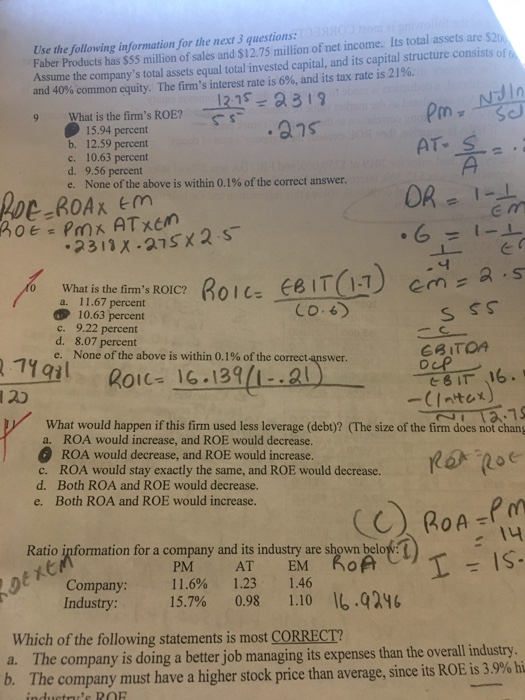 Use the following information for the next 3 questions:
Faber Products has $55 million of sales and $12.75 million of net income. Its total assets are
Assume the company's total assets equal total invested capital, and its capital structure consists of
and 40% common equity. The firm's interest rate is 6%, and its tax rate is 21%.
12.75 = 2318
55
.275
9 What is the firm's ROE?
15.94 percent
b. 12.59 percent
c. 10.63 percent
d. 9.56 percent
e. None of the above is within 0.1% of the correct answer.
Pm =
AT = S
A
DR = 1 - 1
Em
.6 = 1 - 1
ROE = ROA x EM
ROE = PM x AT x EM
.2318 x .275 x 2.5
.4
Em = 2.5
10 What is the firm's ROIC?
a. 11.67 percent
10.63 percent
c. 9.22 percent
d. 8.07 percent
e. None of the above is within 0.1% of the correct answer.
ROIC = EBIT(1-T)
(0.6)
ROIC = 16.139(1-.21)
120
S 55
- C
EBITDA
DEP
EBIT 16.
-(Int+tax)
NI 12.75
11 What would happen if this firm used less leverage (debt)? (The size of the firm does not
a. ROA would increase, and ROE would decrease.
ROA would decrease, and ROE would increase.
c. ROA would stay exactly the same, and ROE would decrease.
d. Both ROA and ROE would decrease.
e. Both ROA and ROE would increase.
ROA ROE
(C) ROA = PM
= 14
I = 15.
Ratio information for a company and its industry are shown below:
PM AT EM ROA
Company: 11.6% 1.23 1.46
Industry: 15.7% 0.98 1.10 16.9246
Which of the following statements is most CORRECT?
a. The company is doing a better job managing its expenses than the overall industry.
b. The company must have a higher stock price than average, since its ROE is 3.9%
industry's ROE